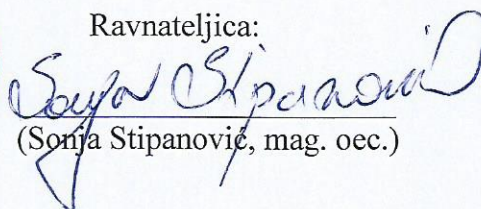 Ravnateljica:
Sonja Stipanović
(Sonja Stipanović, mag. oec.)